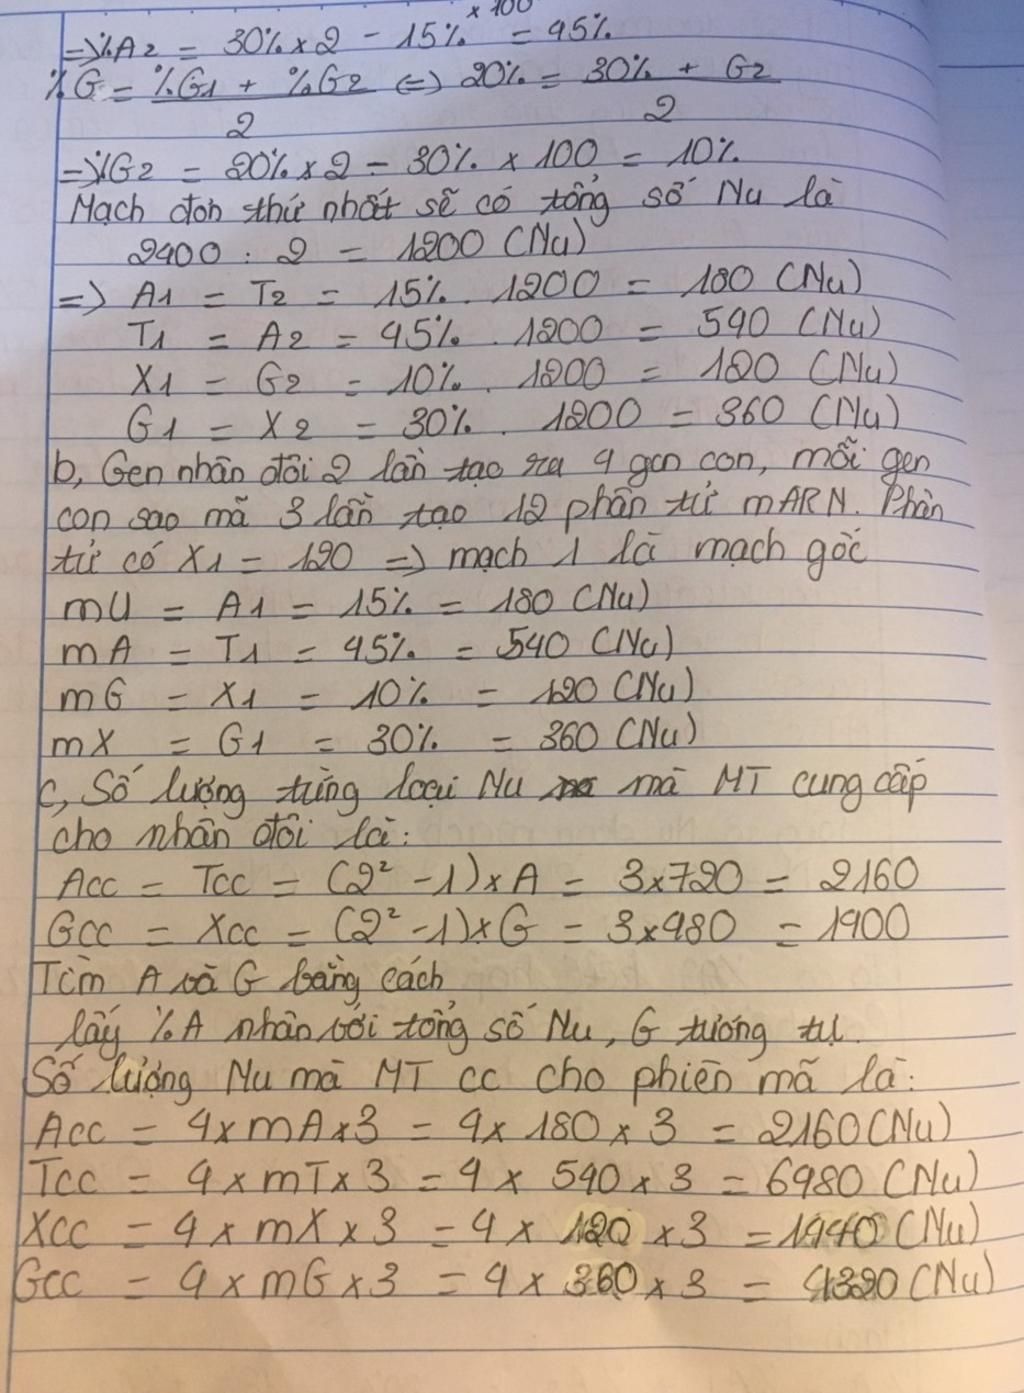 x 100
=> %A2 = 30% x 2 - 15% = 45%
%G = %G1 + %G2 / 2 <=> 20% = 30% + G2 / 2
=> %G2 = 20% x 2 - 30% x 100 = 10%
Mạch đơn thứ nhất sẽ có tổng số Nu là
2400 : 2 = 1200 (Nu)
=> A1 = T2 = 15% . 1200 = 180 (Nu)
T1 = A2 = 45% . 1200 = 540 (Nu)
X1 = G2 = 10% . 1200 = 120 (Nu)
G1 = X2 = 30% . 1200 = 360 (Nu)
b, Gen nhân đôi 2 lần tạo ra 4 gen con, mỗi gen
con sao mã 3 lần tạo 12 phân tử mARN. Phân
tử có X1 = 120 => mạch 1 là mạch gốc
mU = A1 = 15% = 180 (Nu)
mA = T1 = 45% = 540 (Nu)
mG = X1 = 10% = 120 (Nu)
mX = G1 = 30% = 360 (Nu)
c, Số lượng từng loại Nu mà MT cung cấp
cho nhân đôi là:
Acc = Tcc = (2² - 1) x A = 3x720 = 2160
Gcc = Xcc = (2² - 1) x G = 3x480 = 1400
Tìm A và G bằng cách
lấy %A nhân với tổng số Nu, G tương tự.
Số lượng Nu mà MT cc cho phiên mã là:
Acc = 4 x mA x 3 = 4 x 180 x 3 = 2160 (Nu)
Tcc = 4 x mT x 3 = 4 x 540 x 3 = 6480 (Nu)
Xcc = 4 x mX x 3 = 4 x 120 x 3 = 1440 (Nu)
Gcc = 4 x mG x 3 = 4 x 360 x 3 = 4320 (Nu)